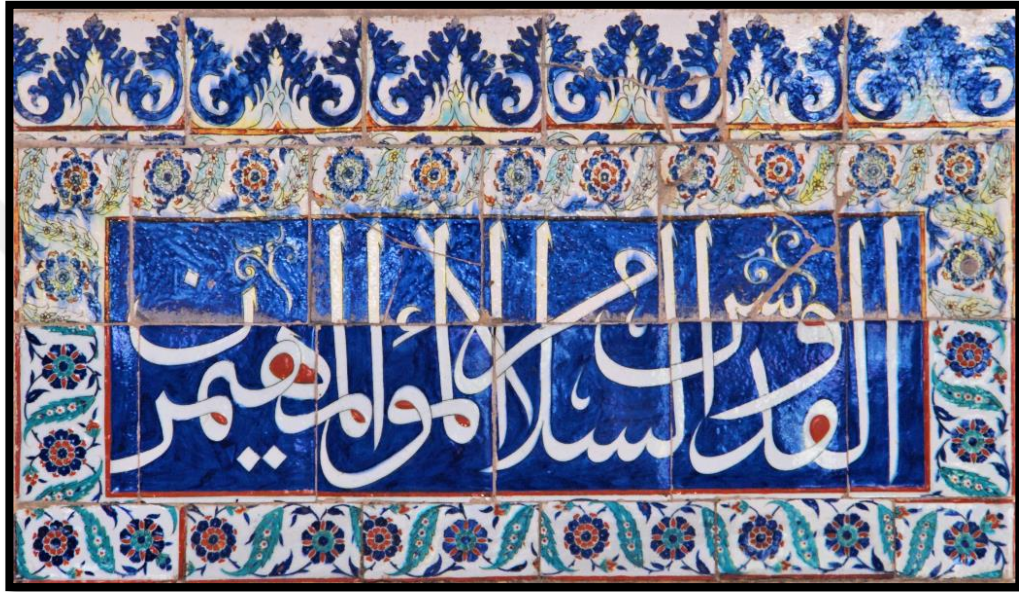 القدوس السلام المؤمن المهيمن